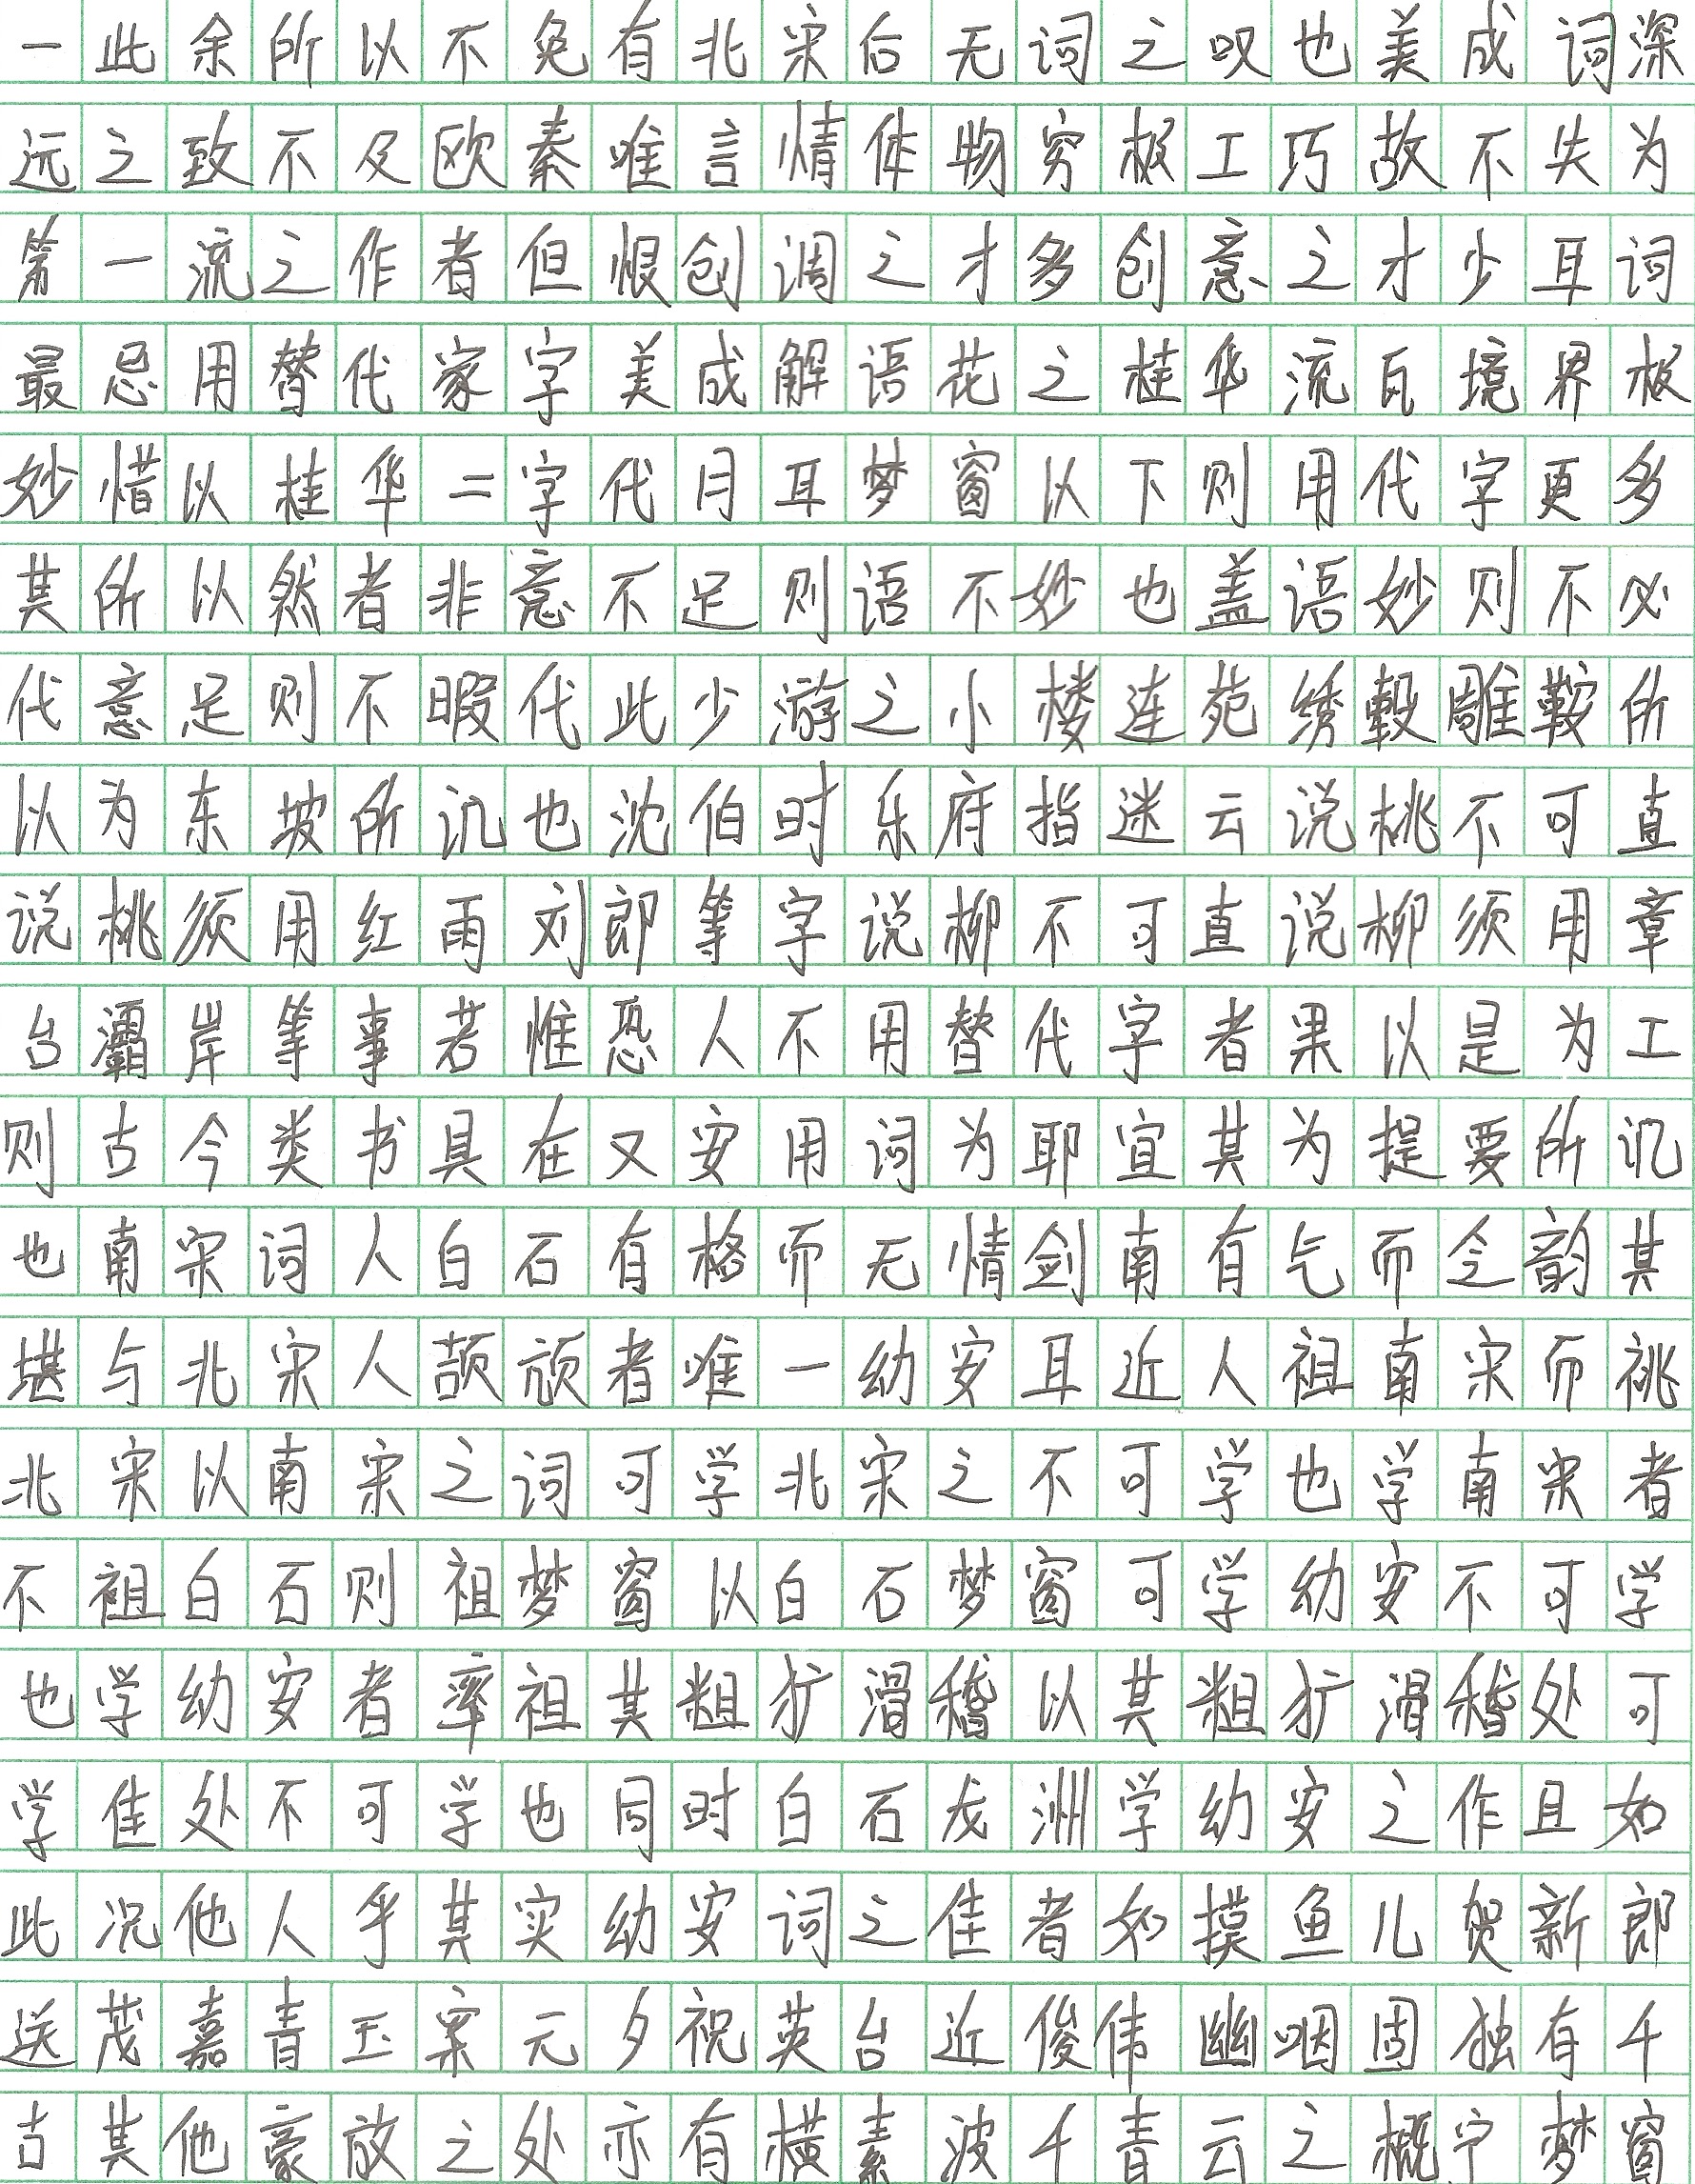 一此余所以不免有北宋后无词之叹也美成词深
远之致不及欧秦唯言情体物穷极工巧故不失为
第一流之作者但恨创调之才多创意之才少耳词
最忌用替代家字美成解语花之桂华流瓦境界极
妙惜以桂华二字代月耳梦窗以下则用代字更多
其所以然者非意不足则语不妙也盖语妙则不必
代意足则不暇代此少游之小楼连苑绣毂雕鞍所
以为东坡所讥也沈伯时乐府指迷云说桃不可直
说桃须用红雨刘郎等字说柳不可直说柳须用章
台灞岸等事若惟恐人不用替代字者果以是为工
则古今类书具在又安用词为耶宜其为提要所讥
也南宋词人白石有格而无情剑南有气而今韵其
堪与北宋人颉颃者唯一幼安耳近人祖南宋而祧
北宋以南宋之词可学北宋之不可学也学南宋者
不祖白石则祖梦窗以白石梦窗可学幼安不可学
也学幼安者率祖其粗犷滑稽以其粗犷滑稽处可
学佳处不可学也同时白石龙洲学幼安之作且如
此况他人乎其实幼安词之佳者如摸鱼儿贺新郎
送茂嘉青玉案元夕祝英台近俊伟幽咽固独有千
古其他豪放之处亦有横素波千青云之概宁梦窗